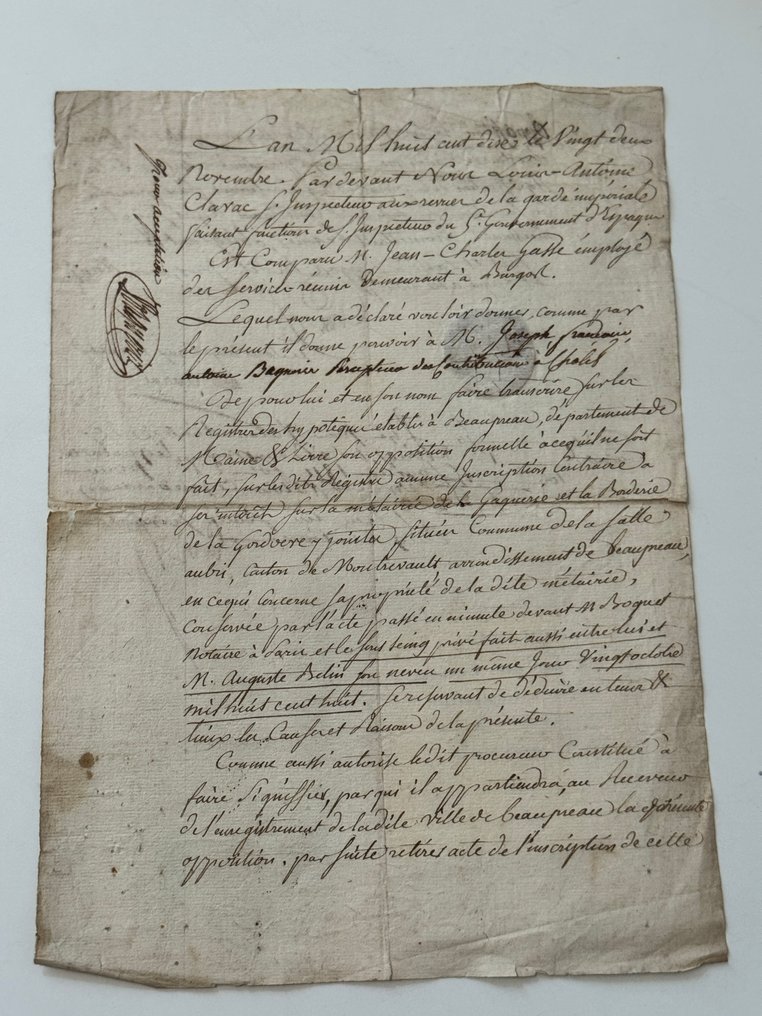 Pour acceptation
L'an Mil huit cent dix le Vingt deux
Novembre. Pardevant Nous Louis-Antoine
Clarac s. Inspecteur aux revues de la garde impériale
faisant fonctions de s. Inspecteur du 5e. Gouvernement d'Espagne
Est Comparu M. Jean-Charles Gasse employé
des services réunis demeurant à Burgos.
Lequel nous a déclaré vouloir donner, comme par
le présent il donne pouvoir à M. Joseph, francois,
antoine Percepteur des Contributions à Cholet
De pour lui et en son nom faire transcrire sur les
Registres des hypotèques établis à Beaupreau, département de
Maine & Loire son opposition formelle à cequ'il ne soit
fait, sur les dits Registres aucune Inscription Contraire à
ses intérêts sur la métairie de la Gaguerie et la Borderie
de la y jointe, situées Commune de la salle
aubri, Canton de Montrevault, arrondissement de beaupreau,
en cequi Concerne sa propriété de la dite métairie,
Conservée par l'acte passé en minute devant M Boquet
Notaire à Paris et le sous seing privé fait aussi entre lui et
M. Auguste Belin son neveu un même Jour Vingt octobre
mil huit cent huit. se réservant de déduire en tems &
lieux les Causes et Raisons de la présente.
Comme aussi autorise ledit procureur Constitué à
faire signifier, par qui il appartiendra, au Receveur
de l'enregistrement de la dite Ville de beaupreau la présente
opposition. par suite retirer acte de l'inscription de cette